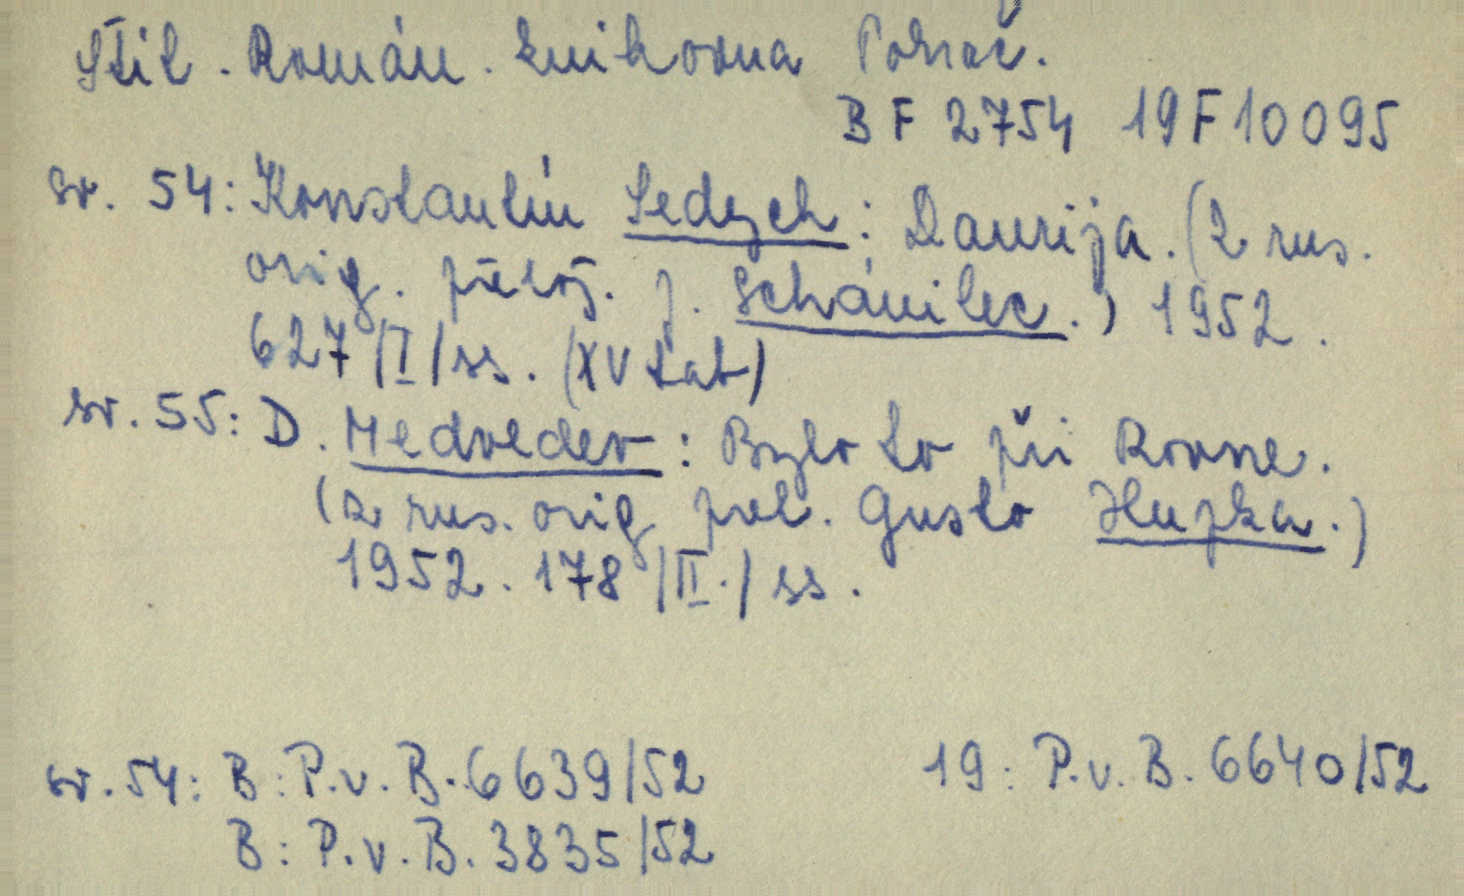 Štít. Román. knihovna Pokrač.
BF 2754 19F10095
sv. 54: Konstantin Sedych: Daurija. (Z rus.
orig. přelož. J. Schánilec.) 1952.
627/I/ss. (XV tab)
sv. 55: D. Medvedev: Bylo to při Rovne.
(Z rus. orig. prel. Gusto Hupka.)
1952. 178/II./ss.
sv. 54: B: P.v.B. 6639/52 19: P.v.B. 6640/52
B: P.v.B. 3835/52